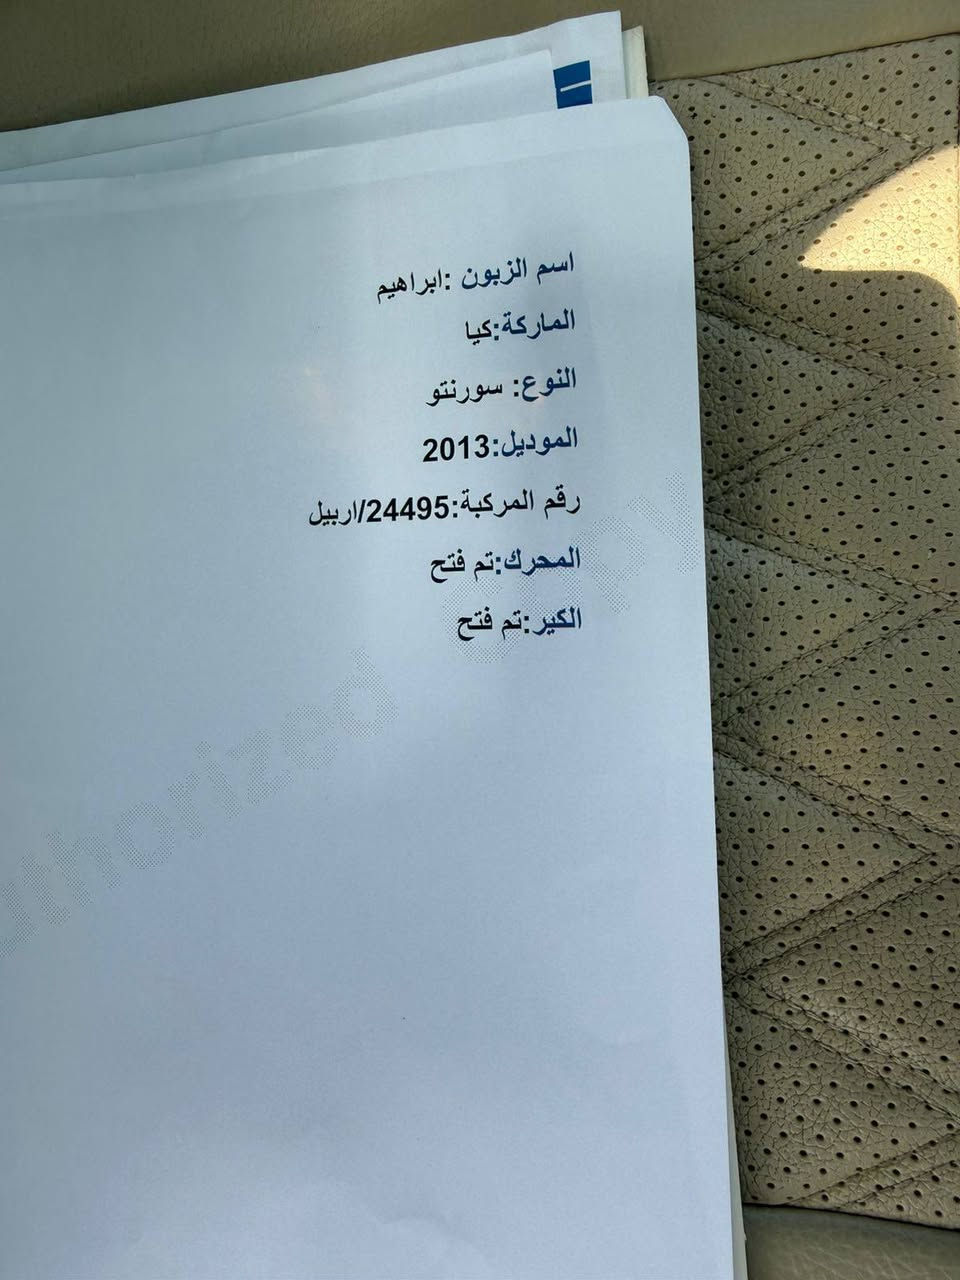 اسم الزبون :ابراهيم
الماركة:كيا
النوع: سورنتو
الموديل:2013
رقم المركبة:24495/اربيل
المحرك:تم فتح
الكير:تم فتح